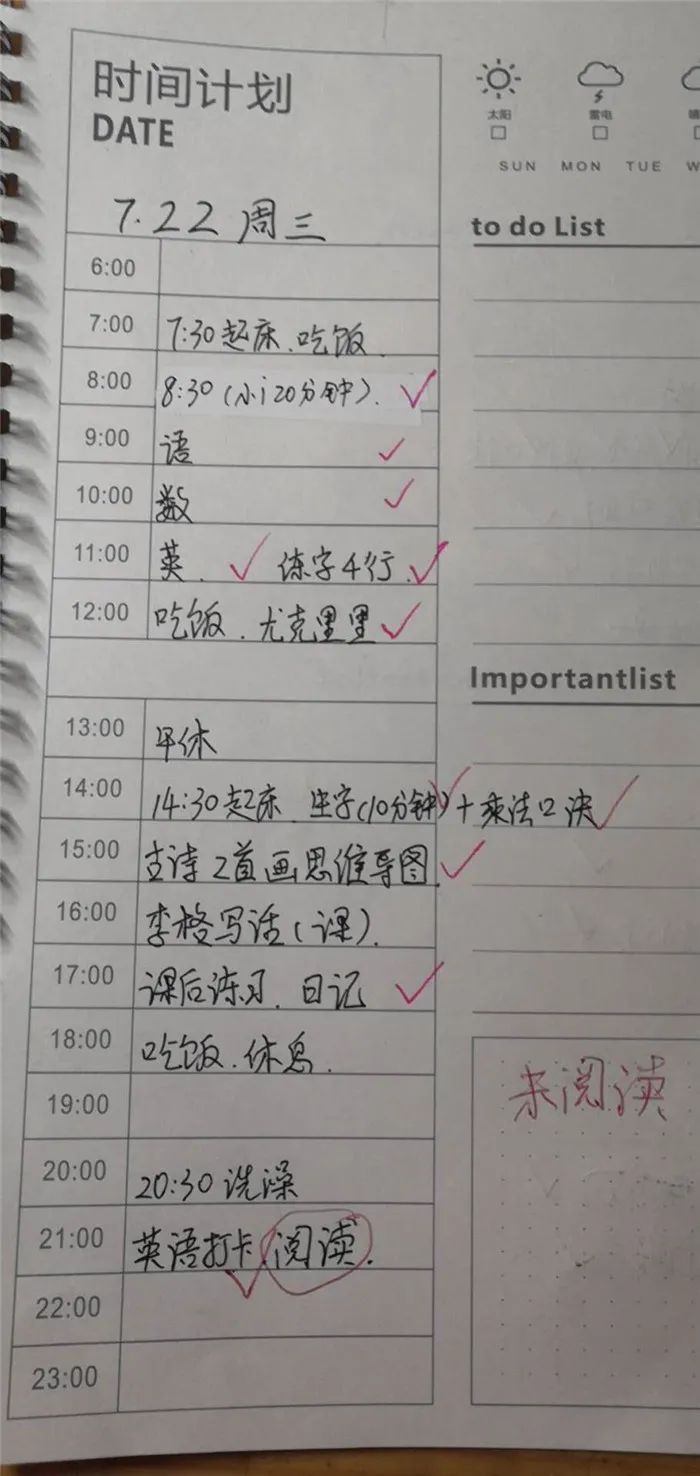 时间计划
DATE
7.22 周三
6:00
7:00 7:30起床、吃饭.
8:00 8:30(小i20分钟).
9:00 语
10:00 数
11:00 英. 练字4行.
12:00 吃饭.尤克里里
13:00 午休
14:00 14:30起床.生字(10分钟)+乘法口决
15:00 古诗2首画思维导图.
16:00 李格写话(课).
17:00 课后练习.日记
18:00 吃饭.休息.
19:00
20:00 20:30洗澡
21:00 英语打卡.阅读.
22:00
23:00
太阳 雷电 晴
SUN MON TUE W
to do List
Importantlist
未阅读